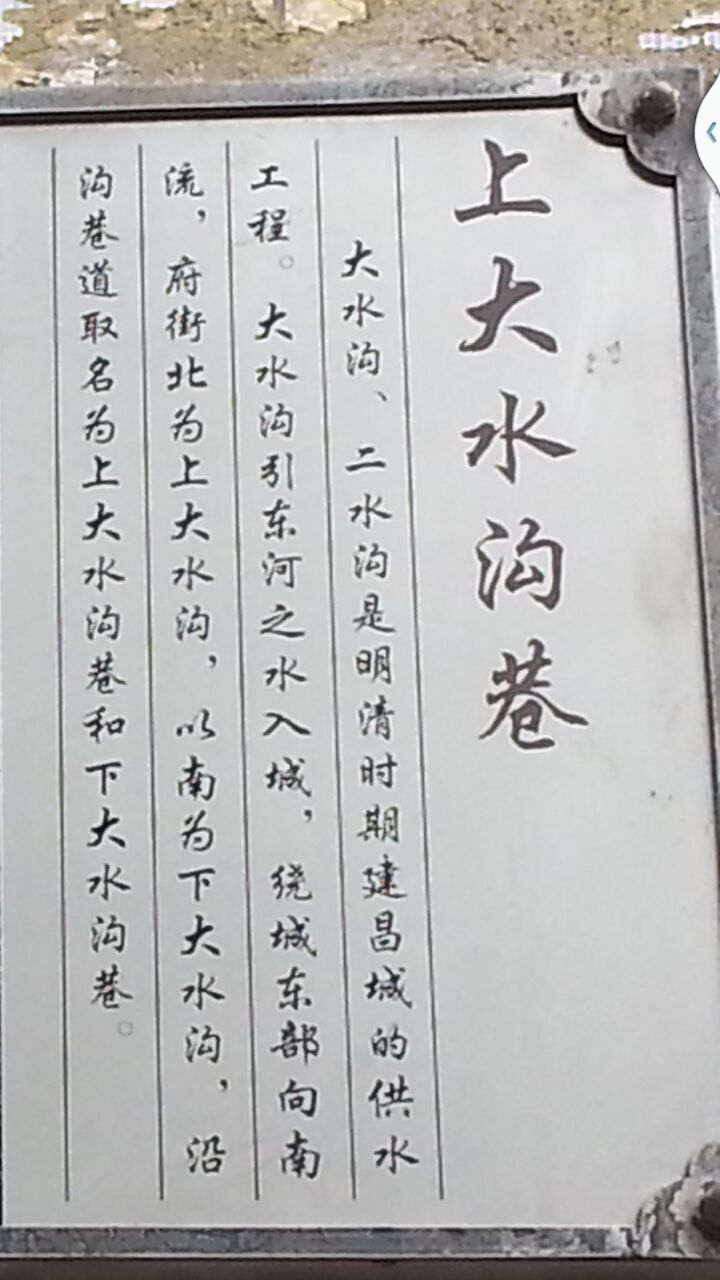 上大水沟巷
大水沟、二水沟是明清时期建昌城的供水
工程。大水沟引东河之水入城，绕城东部向南
流，府街北为上大水沟，以南为下大水沟，沿
沟巷道取名为上大水沟巷和下大水沟巷。